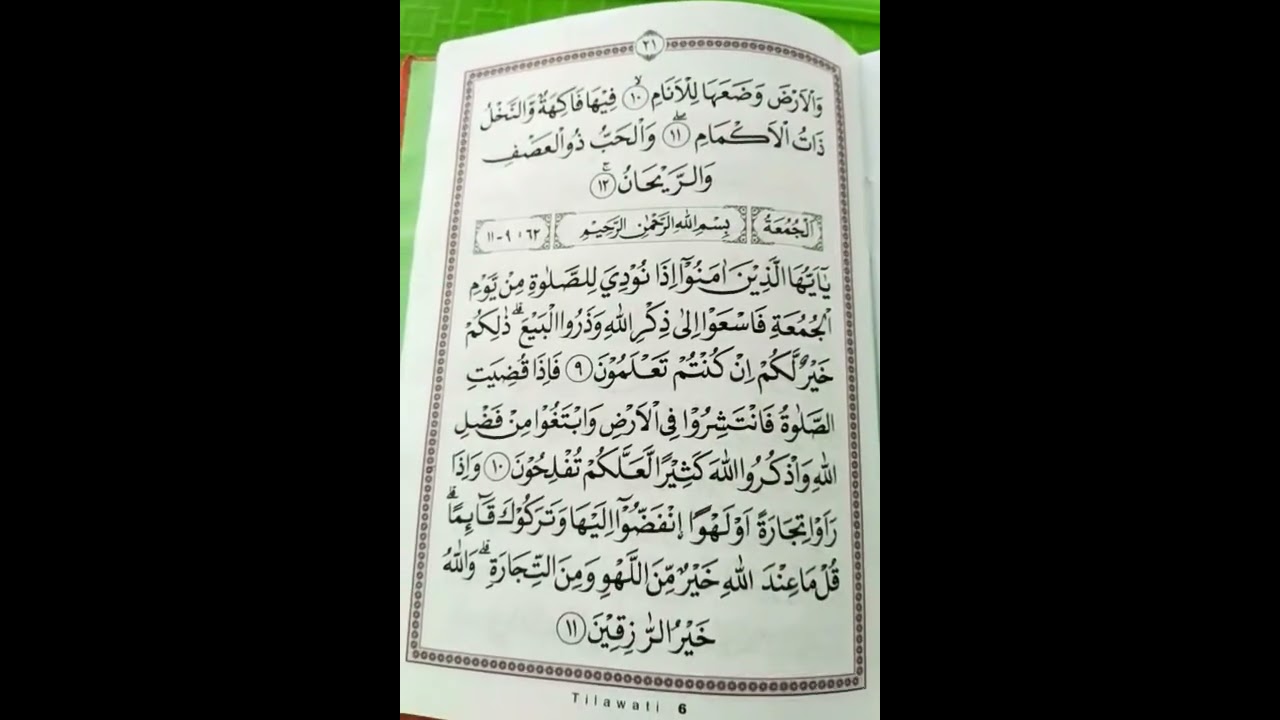 ٢١
وَالْاَرْضَ وَضَعَهَا لِلْاَنَامِۙ ١٠ فِيْهَا فَاكِهَةٌ وَّالنَّخْلُ
ذَاتُ الْاَكْمَامِۖ ١١ وَالْحَبُّ ذُو الْعَصْفِ
وَالرَّيْحَانُۚ ١٢
اَلْجُمُعَةُ بِسْمِ اللهِ الرَّحْمٰنِ الرَّحِيْمِ ٦٢ : ٩-١١
يٰٓاَيُّهَا الَّذِيْنَ اٰمَنُوْٓا اِذَا نُوْدِيَ لِلصَّلٰوةِ مِنْ يَّوْمِ
الْجُمُعَةِ فَاسْعَوْا اِلٰى ذِكْرِ اللهِ وَذَرُوا الْبَيْعَۗ ذٰلِكُمْ
خَيْرٌ لَّكُمْ اِنْ كُنْتُمْ تَعْلَمُوْنَ ٩ فَاِذَا قُضِيَتِ
الصَّلٰوةُ فَانْتَشِرُوْا فِى الْاَرْضِ وَابْتَغُوْا مِنْ فَضْلِ
اللهِ وَاذْكُرُوا اللهَ كَثِيْرًا لَّعَلَّكُمْ تُفْلِحُوْنَ ١٠ وَاِذَا
رَاَوْا تِجَارَةً اَوْ لَهْوًا اِنْفَضُّوْٓا اِلَيْهَا وَتَرَكُوْكَ قَآئِمًاۗ
قُلْ مَا عِنْدَ اللهِ خَيْرٌ مِّنَ اللَّهْوِ وَمِنَ التِّجَارَةِۗ وَاللهُ
خَيْرُ الرّٰزِقِيْنَ ١١
Tilawati 6